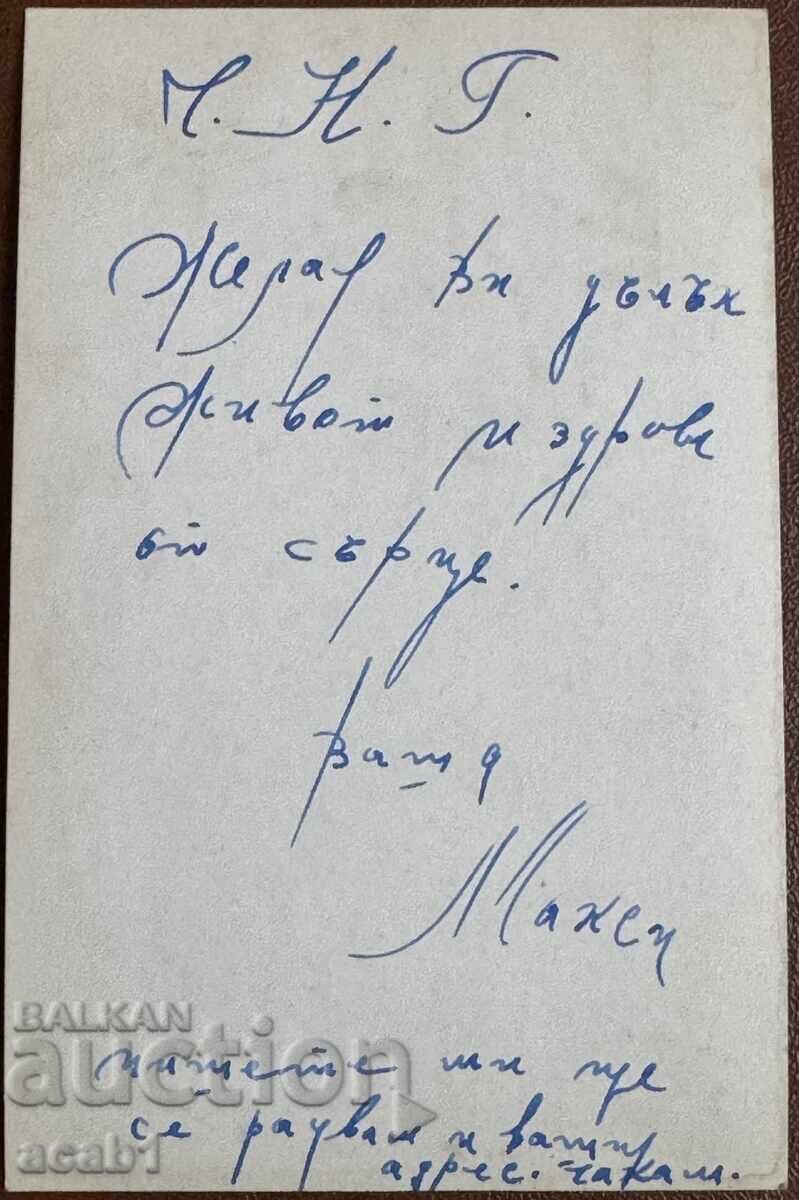 Ч. Н. Г.
Желая Ви дълъг
живот и здраве
от сърце.
Ваш
Макси
пишете ми ще
се радвам и
адрес. чакам.
BALKAN
auction
acab1